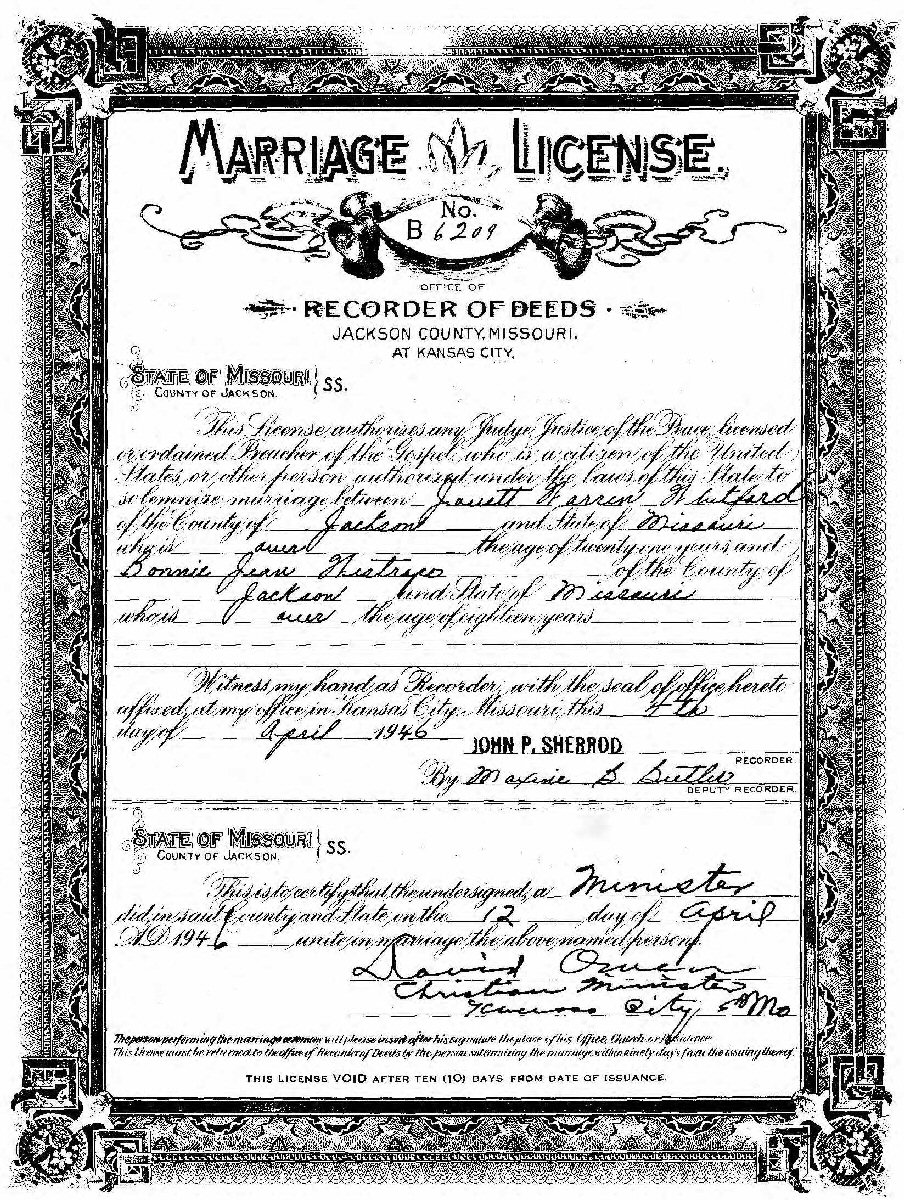 MARRIAGE LICENSE.
No.
B 6209
OFFICE OF
RECORDER OF DEEDS
JACKSON COUNTY, MISSOURI.
AT KANSAS CITY.
STATE OF MISSOURI } SS.
COUNTY OF JACKSON.
This License authorizes any Judge, Justice of the Peace, licensed
or ordained Preacher of the Gospel, who is a citizen of the United
States, or other person authorized under the laws of this State to
solemnize marriage between Warren
of the County of Jackson and State of Missouri
who is over the age of twenty one years and
Bonnie Jean of the County of
Jackson and State of Missouri
who is over the age of eighteen years
Witness my hand as Recorder, with the seal of office hereto
affixed, at my office in Kansas City, Missouri, this 4th
day of April 1946
JOHN P. SHERROD
RECORDER.
By Maxine B Butler
DEPUTY RECORDER.
STATE OF MISSOURI } SS.
COUNTY OF JACKSON.
This is to certify that the undersigned, a Minister
did in said County and State, on the 12 day of April
A.D. 1946 unite in marriage the above named persons.
David
Christian Minister
Kansas City Mo
The person performing the marriage ceremony will please insert after his signature the place of his Office, Church or Residence
This License must be returned to the office of Recorder of Deeds by the person solemnizing the marriage within ninety days from the issuing thereof.
THIS LICENSE VOID AFTER TEN (10) DAYS FROM DATE OF ISSUANCE.